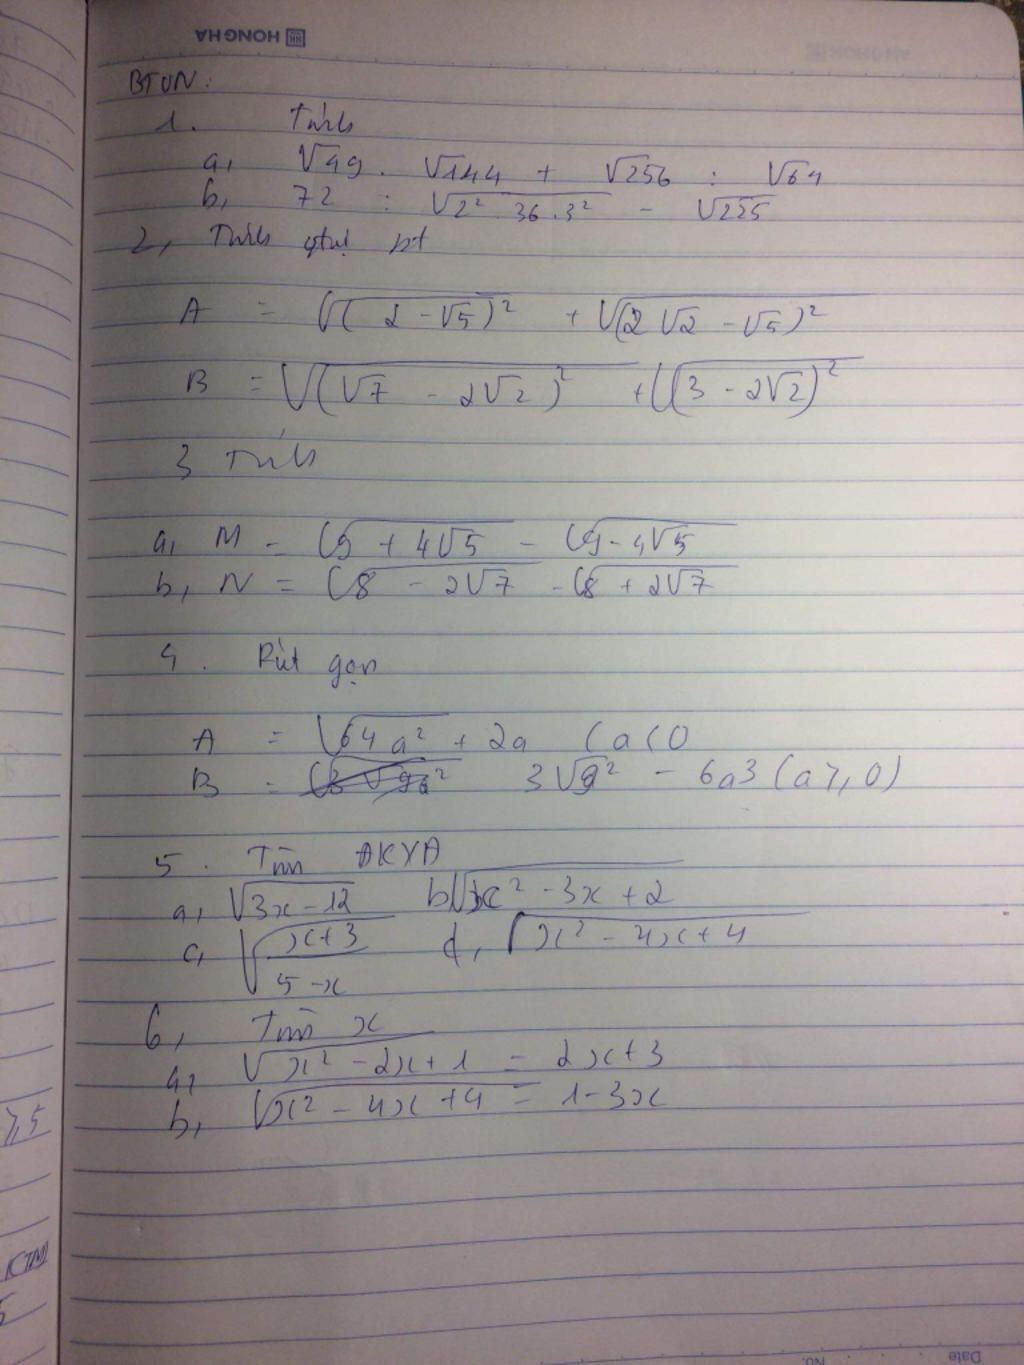 HONG HA
BTVN:
1. Tính
a, √49 . √144 + √256 : √64
b, 72 : √2² . 36 . 3² - √225
2, Tính gtrị bt
A = √(2 - √5)² + √(2√2 - √5)²
B = √(√7 - 2√2)² + √(3 - 2√2)²
3 Tính
a, M = √9 + 4√5 - √9 - 4√5
b, N = √8 - 2√7 - √8 + 2√7
4. Rút gọn
A = √64a² + 2a (a<0
B = 3√9² - 6a3 (a≥0)
5. Tìm ĐKXĐ
a, √3x - 12 b √x² - 3x + 2
c, √x+3/5-x d, √x² - 4x + 4
6, Tìm x
a, √x² - 2x + 1 = 2x + 3
b, √x² - 4x + 4 = 1 - 3x
≥5
KTM
5
No. Date